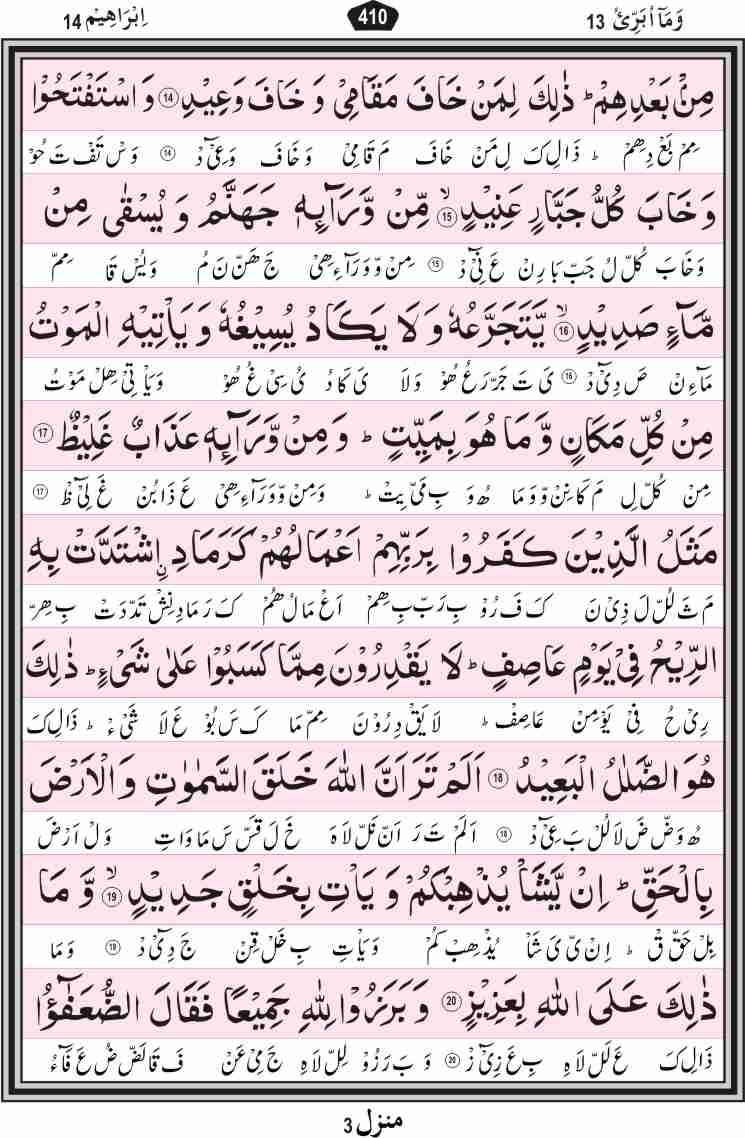 وَمَآ اُبَرِّئُ 13 410 اِبْرَاهِيْم 14
مِنْۢ بَعْدِهِمْ ؕ ذٰلِكَ لِمَنْ خَافَ مَقَامِىْ وَ خَافَ وَعِيْدِ ۝14 وَ اسْتَفْتَحُوْا
مِمْ بَعْ دِهِمْ ؕ ذَالِ كَ لِ مَنْ خَافَ مَ قَامِىْ وَ خَافَ وَعِىْٓ دْ ۝14 وَسْ تَفْ تَ حُوْ
وَ خَابَ كُلُّ جَبَّارٍ عَنِيْدٍۙ ۝15 مِّنْ وَّرَآئِهٖ جَهَنَّمُ وَ يُسْقٰى مِنْ
وَ خَابَ كُلْ لُ جَبْ بَا رِنْ عَ نِىْٓ دْ ۝15 مِنْ وْ وَرَآءِ هِىْ جَ هَنْ نَ مُ وَ يُسْ قَا مِمْ
مَّآءٍ صَدِيْدٍۙ ۝16 يَّتَجَرَّعُهٗ وَ لَا يَكَادُ يُسِيْغُهٗ وَ يَاْتِيْهِ الْمَوْتُ
مَآءِ نْ صَ دِىْٓ دْ ۝16 ىَ تَ جَرْ رَ عُ هُوْ وَ لَا ىَ كَا دُ ىُ سِىْ غُ هُوْ وَ يَاْ تِىْ هِلْ مَوْ تُ
مِنْ كُلِّ مَكَانٍ وَّ مَا هُوَ بِمَيِّتٍ ؕ وَ مِنْ وَّرَآئِهٖ عَذَابٌ غَلِيْظٌ ۝17
مِنْ كُلْ لِ مَ كَا نِنْ وْ وَ مَا هُ وَ بِ مَىْ يِتْ ؕ وَ مِنْ وْ وَرَآءِ هِىْ عَ ذَا بُنْ غَ لِىْٓ ظْ ۝17
مَثَلُ الَّذِيْنَ كَفَرُوْا بِرَبِّهِمْ اَعْمَالُهُمْ كَرَمَادِ ِۨاشْتَدَّتْ بِهِ
مَ ثَ لُلْ لَ ذِىْ نَ كَ فَ رُوْ بِ رَبْ بِ هِمْ اَعْ مَا لُ هُمْ كَ رَ مَا دِ نِشْ تَدْ دَ تْ بِ هِرْ
الرِّيْحُ فِىْ يَوْمٍ عَاصِفٍ ؕ لَا يَقْدِرُوْنَ مِمَّا كَسَبُوْا عَلٰى شَىْءٍ ؕ ذٰلِكَ
رِىْ حُ فِىْ يَوْ مِنْ عَاصِفْ ؕ لَا يَقْ دِ رُوْنَ مِمْ مَا كَ سَ بُوْ عَ لَا شَىْ ءْ ؕ ذَالِ كَ
هُوَ الضَّلٰلُ الْبَعِيْدُ ۝18 اَلَمْ تَرَ اَنَّ اللّٰهَ خَلَقَ السَّمٰوٰتِ وَ الْاَرْضَ
هُ وَضْ ضَ لَا لُلْ بَ عِىْٓ دْ ۝18 اَلَمْ تَ رَ اَنْ نَلْ لَا هَ خَ لَ قَسْ سَ مَا وَاتِ وَلْ اَرْضَ
بِالْحَقِّ ؕ اِنْ يَّشَاْ يُذْهِبْكُمْ وَ يَاْتِ بِخَلْقٍ جَدِيْدٍۙ ۝19 وَّ مَا
بِلْ حَقْ قْ ؕ اِنْ ىْ ىَ شَاْ يُذْهِبْ كُمْ وَ يَاْتِ بِ خَلْ قِنْ جَ دِىْٓ دْ ۝19 وَ مَا
ذٰلِكَ عَلَى اللّٰهِ بِعَزِيْزٍ ۝20 وَ بَرَزُوْا لِلّٰهِ جَمِيْعًا فَقَالَ الضُّعَفٰٓؤُا
ذَالِ كَ عَ لَلْ لَاهِ بِ عَ زِىْٓ زْ ۝20 وَ بَ رَ زُوْ لِلْ لَاهِ جَ مِىْ عَنْ فَ قَا لَضْ ضُ عَ فَآءُ
منزل 3